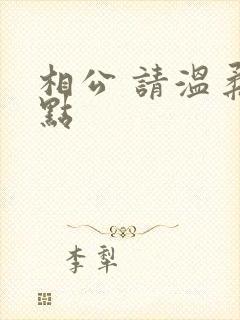 相公 請溫柔
點
李犁